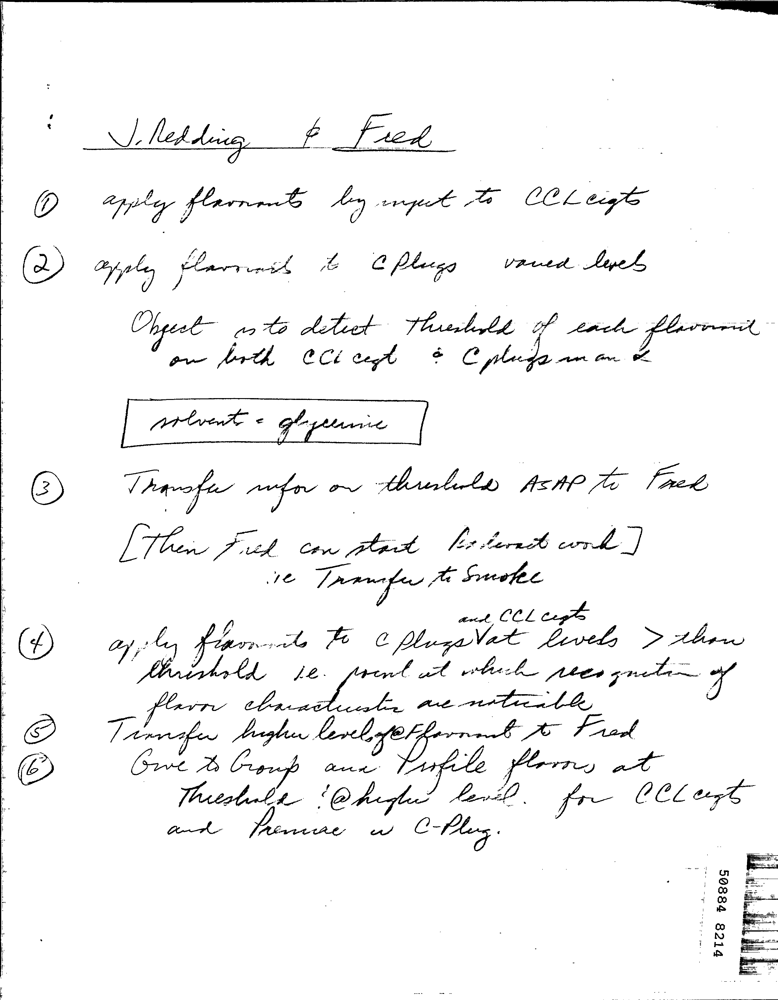 J. Redding & Fred
① apply flavorants by input to CCL cigts
② apply flavorants to C Plugs varied levels
Object is to detect threshold of each flavorant
on both CCL cigt & C plugs in an
solvent = glycerine
③ Transfer infor on threshold ASAP to Fred
[Then Fred can start work]
ie Transfer to Smoke
and CCL cigts
④ apply flavorants to C Plugs V at levels > than
threshold i.e. point at which recognition of
flavor characteristic are noticable
⑤ Transfer higher levels of flavorant to Fred
⑥ Give to Group and Profile flavors at
Threshold & @ higher level. for CCL cigts
and Premier w C-Plug.
50884 8214